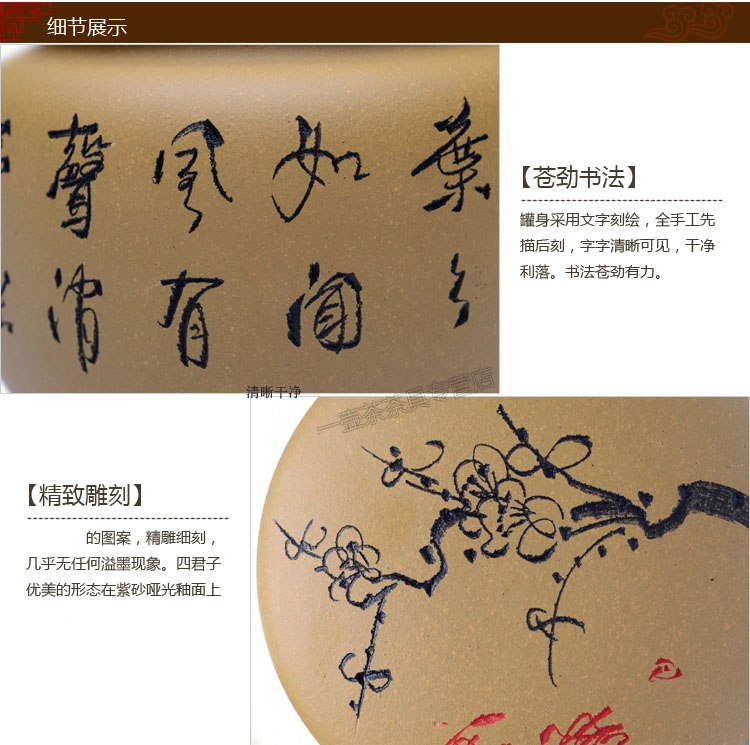 细节展示
葉 如 風 聲
聞 有 消
【苍劲书法】
罐身采用文字刻绘，全手工先
描后刻，字字清晰可见，干净
利落。书法苍劲有力。
清晰干净
一壶茶茶具专营店
【精致雕刻】
的图案，精雕细刻，
几乎无任何溢墨现象。四君子
优美的形态在紫砂哑光釉面上